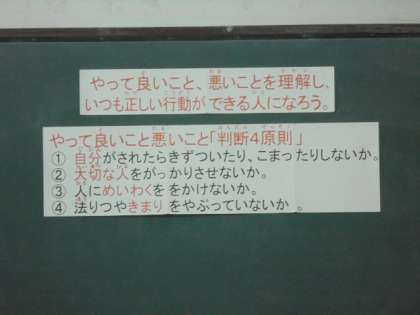 やって良いこと、悪いことを理解し、
いつも正しい行動ができる人になろう。
やって良いこと悪いこと「判断4原則」
① 自分がされたらきずついたり、こまったりしないか。
② 大切な人をがっかりさせないか。
③ 人にめいわくををかけないか。
④ 法りつやきまりをやぶっていないか。